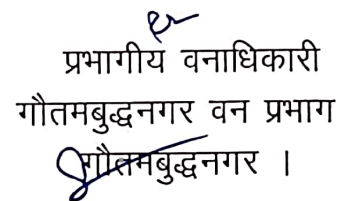 प्रभागीय वनाधिकारी
गौतमबुद्धनगर वन प्रभाग
गौतमबुद्धनगर ।